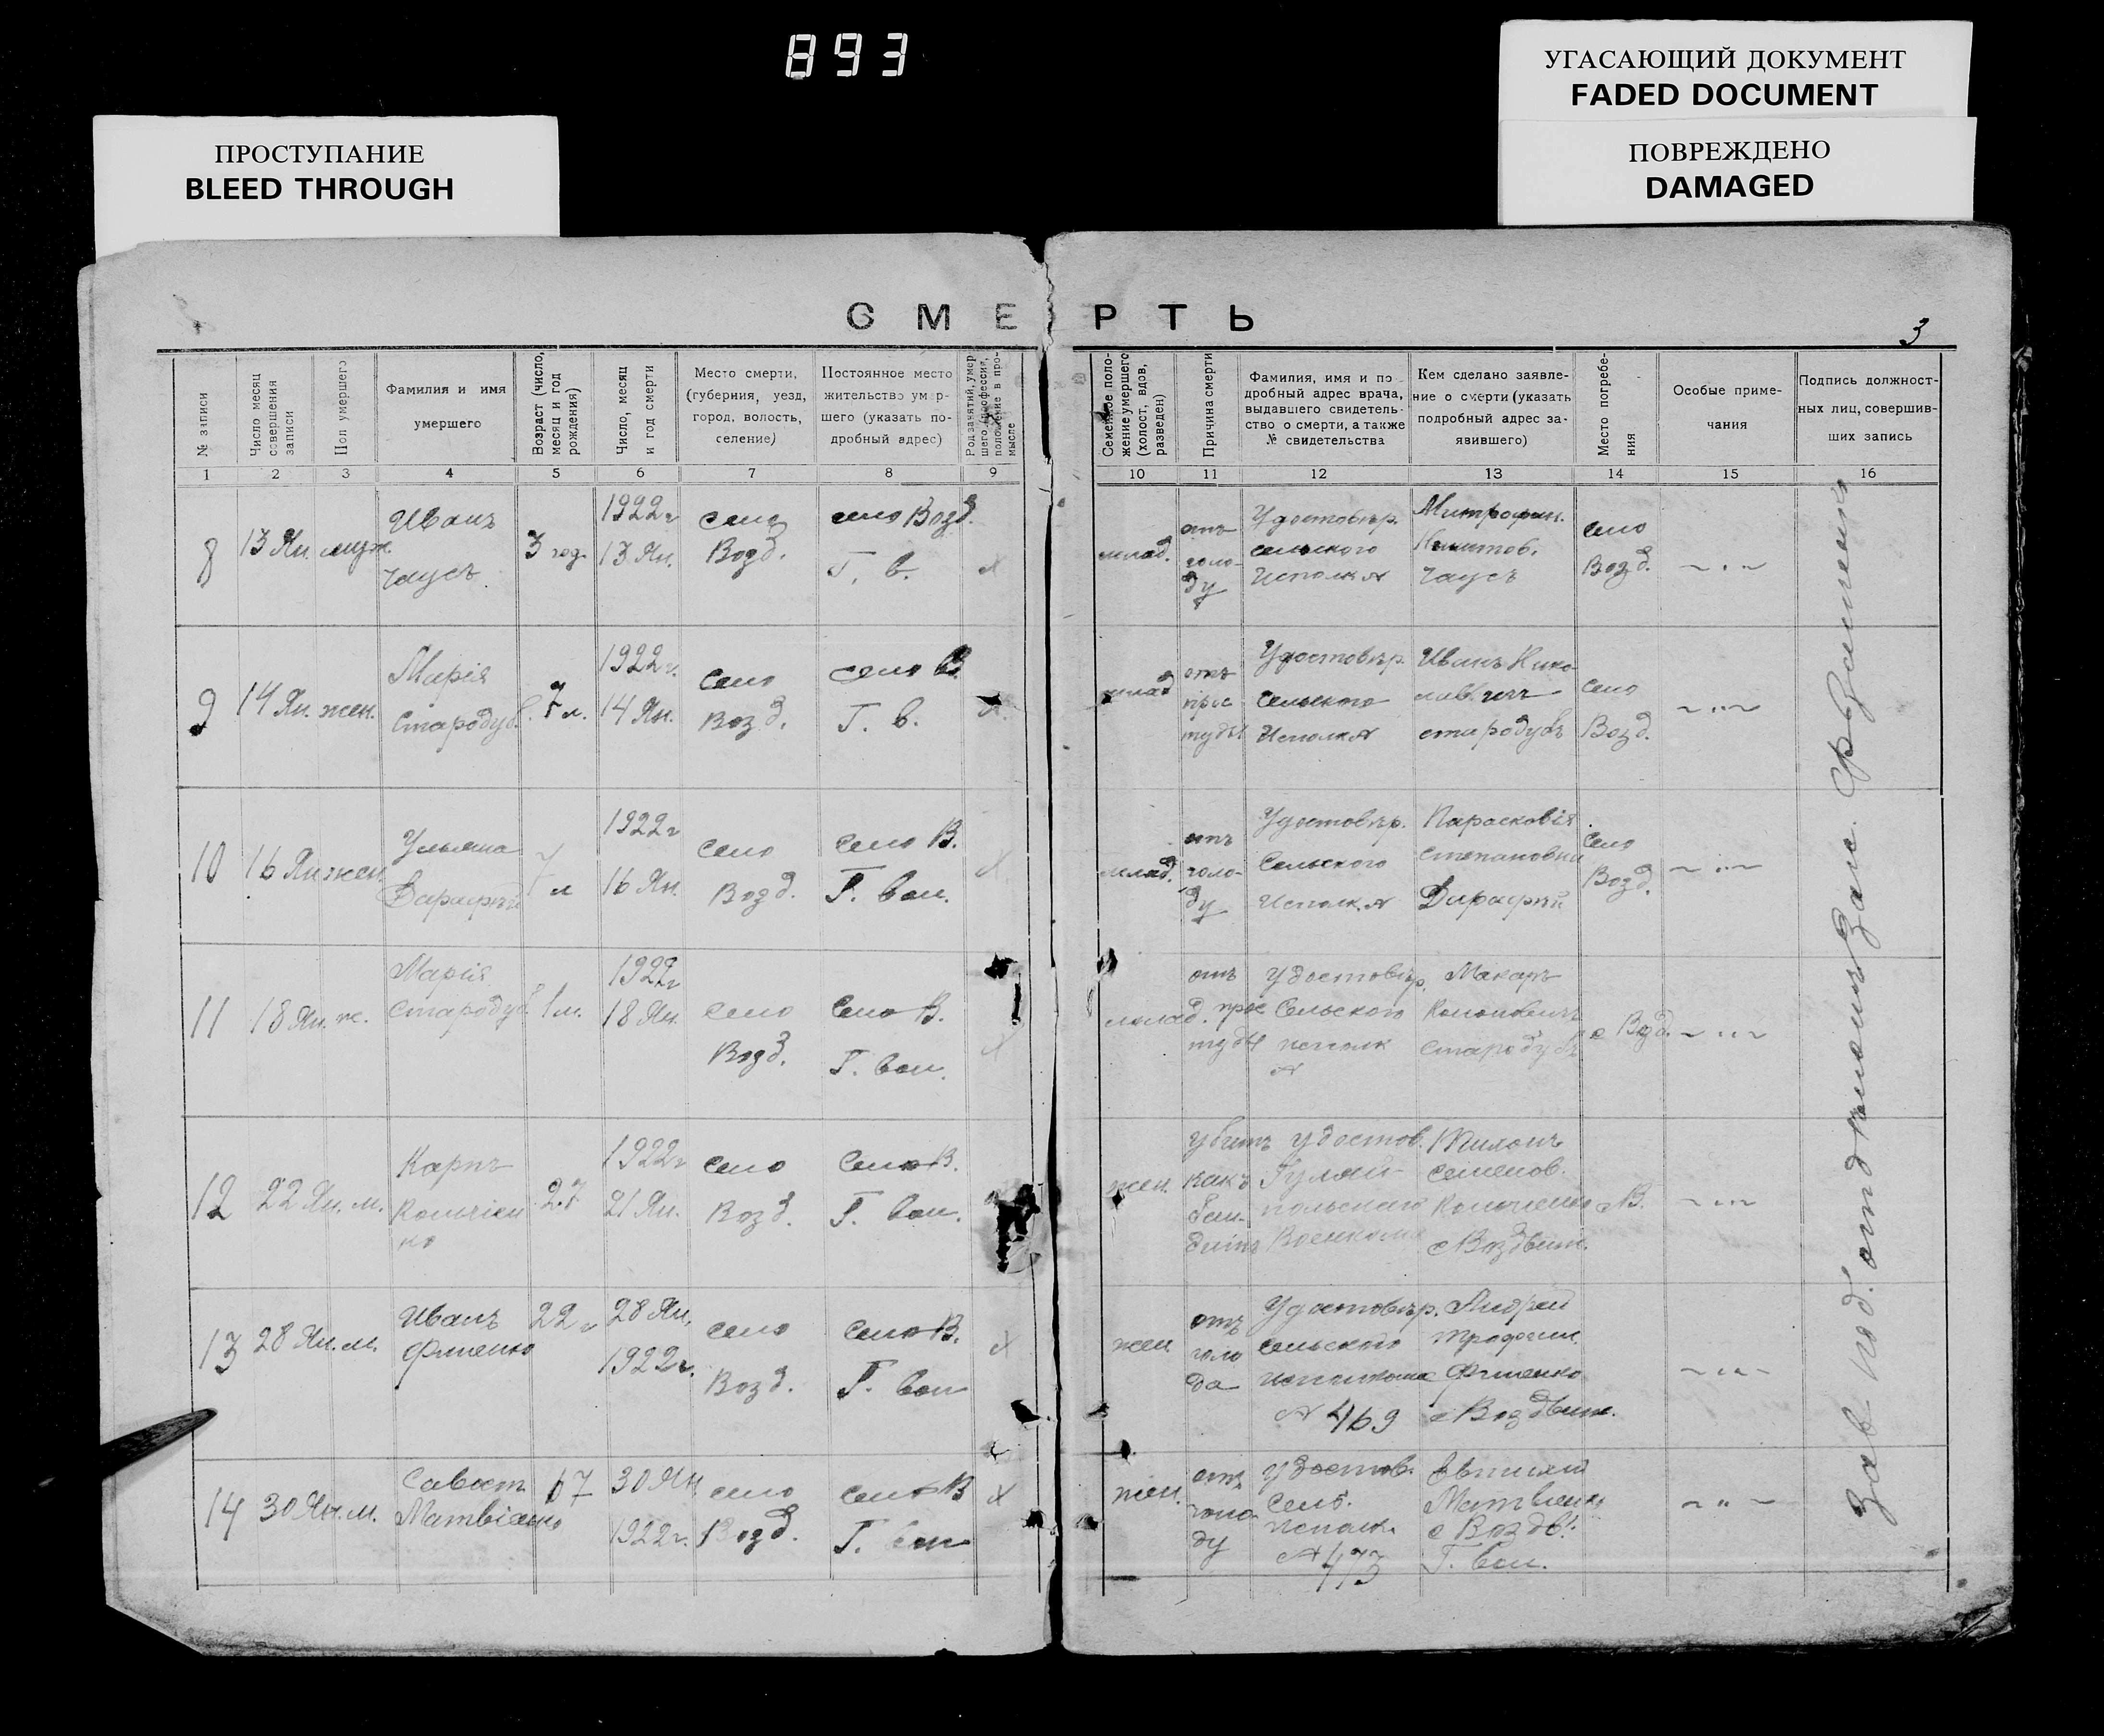 893
УГАСАЮЩИЙ ДОКУМЕНТ
FADED DOCUMENT
ПОВРЕЖДЕНО
DAMAGED
ПРОСТУПАНИЕ
BLEED THROUGH
СМЕРТЬ
3
№ записи
Число месяц совершения записи
Пол умершего
Фамилия и имя умершего
Возраст (число, месяц и год рождения)
Число, месяц и год смерти
Место смерти, (губерния, уезд, город, волость, селение)
Постоянное место жительство умершего (указать подробный адрес)
Род занятий, умершего (профессия, положение в промысле
Семейное положение умершего (холост, вдов, разведен)
Причина смерти
Фамилия, имя и подробный адрес врача, выдавшего свидетельство о смерти, а также № свидетельства
Кем сделано заявление о смерти (указать подробный адрес заявившего)
Место погребения
Особые примечания
Подпись должностных лиц, совершивших запись
1 2 3 4 5 6 7 8 9 10 11 12 13 14 15 16
8 13 Ян. муж. Иванъ Чаусъ 3 год. 1922 г 13 Ян. село Возд. село Возд. Г. в.
млад. отъ голоду Удостовѣр. сельского Исполк № Митрофан. Никитов. Чаусъ село Возд.
9 14 Ян. жен. Марія Стародуб. 7 л. 1922 г. 14 Ян. село Возд. село В. Г. в.
млад отъ прос туды Удостовѣр. Сельского Исполк № Иванъ Стародубъ село Возд.
10 16 Ян жен. Ульяна 7 л 1922 г 16 Ян. село Возд. село В. Г. вол.
млад. отъ голоду Удостовѣр. Сельского Исполк. № Парасковія Степановна село Возд.
11 18 Ян. ж. Марія Стародуб. 1 м. 1922 г 18 Ян. село Возд. Село В. Г. вол.
молад. отъ прос туды удостовѣр. Сельского исполк № Макаръ Стародубъ с Возд.
12 22 Ян. м. Карпъ 27 1922 г 21 Ян. село Возд. Село В. Г. вол.
жен. убитъ какъ бандитъ удостов. Гуляйпольскаго Военкома Семенов. с Воздвиж. с В.
13 28 Ян. м. Иванъ 22 г 28 Ян. 1922 г. село Возд. Село В. Г. вол
жен. отъ голода Удостовѣр. сельского исполкома № 469 Андрей с Воздвиж.
14 30 Ян. м. 67 30 Ян 1922 г. село Возд. село В Г. вол
жен. отъ голоду удостов. Сель. исполк. № 473 с Воздв. Г. вол.
Зав. под. отд